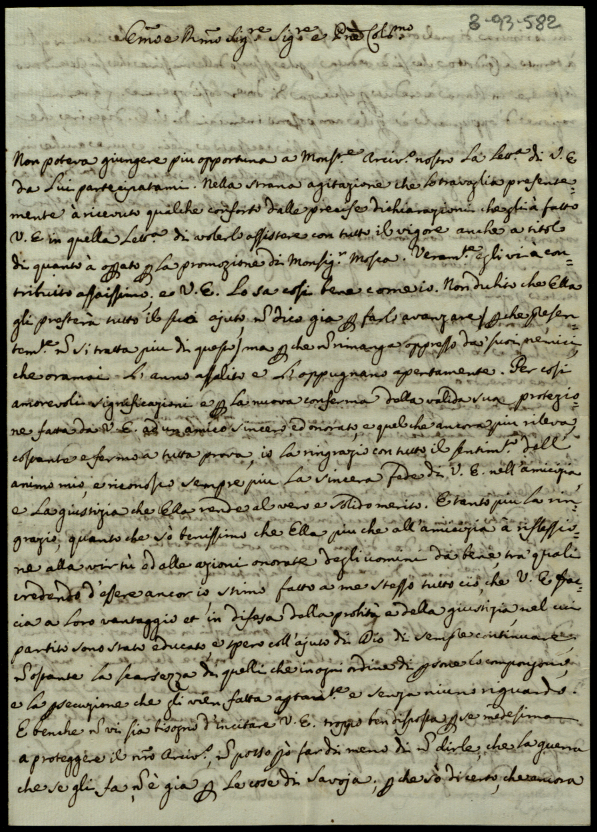 3-93-582
Em̃o e Rm̃o Sig.re Sig.re e Prõn Col.mo
Non poteva giungere piu opportuna a Mons.re Arciv.o nostro la Lett.a di V. E
da Lui partecipatami. Nella strana agitazione che lo travaglia presente=
mente à ricevuto qualche conforto dalle precise dichiarazioni che gli à fatto
V. E in quella Lett.a di volerlo assistere con tutto il vigore anche a titolo
di quanto à oprato p la promozione di Monsig.r Mosca. Veram.te egli vi à con=
tribuito assaissimo, e V. E. Lo sa così bene come io. Non dubito che Ella
gli presterà tutto il suo ajuto, ñ dico già p farlo avanzare, pche presen=
tem.te ñ si tratta piu di questo, ma pche ñ rimanga oppresso da' suoi nemici
che oramai L'anno assalito e L'oppugnano apertamente. Per così
amorevoli significazioni e p La nuova conferma della valida sua protezio=
ne fatta da V. E. ad un amico sincero ed onorato, e quel che ancora più rileva
costante e fermo a tutta prova, io La ringrazio con tutto il sentim.to dell'
animo mio, e riconosco sempre piu La sincera fede di V. E. nell'amicizia,
e La giustizia che Ella rende al vero e solido merito. E tanto piu La rin=
grazio, quanto che sò benissimo che Ella piu che all'amicizia à riflessio=
ne alla virtù ed alle azioni onorate degli uomini da bene, tra quali
credendo d'essere ancor io stimo fatto a me stesso tutto ciò, che V. E fac=
cia a Loro vantaggio et in difesa della probità e della giustizia, nel cui
partito sono stato educato e spero coll'ajuto di Dio di sempre continuare
ñ ostante la scarsezza di quelli che in ogni ordine di psone lo compongono,
e la psecuzione che gli vien fatta aptam.te e senza niun riguardo.
E benche ñ vi sia bisogno d'incitare V. E. troppo ben disposta p se medesima
a proteggere il nr̃o Arciv.o, ñ posso pò far di meno di ñ dirle, che la guerra
che se gli fa, ñ è già p Le cose di Savoja, pche sò di certo, che ancora